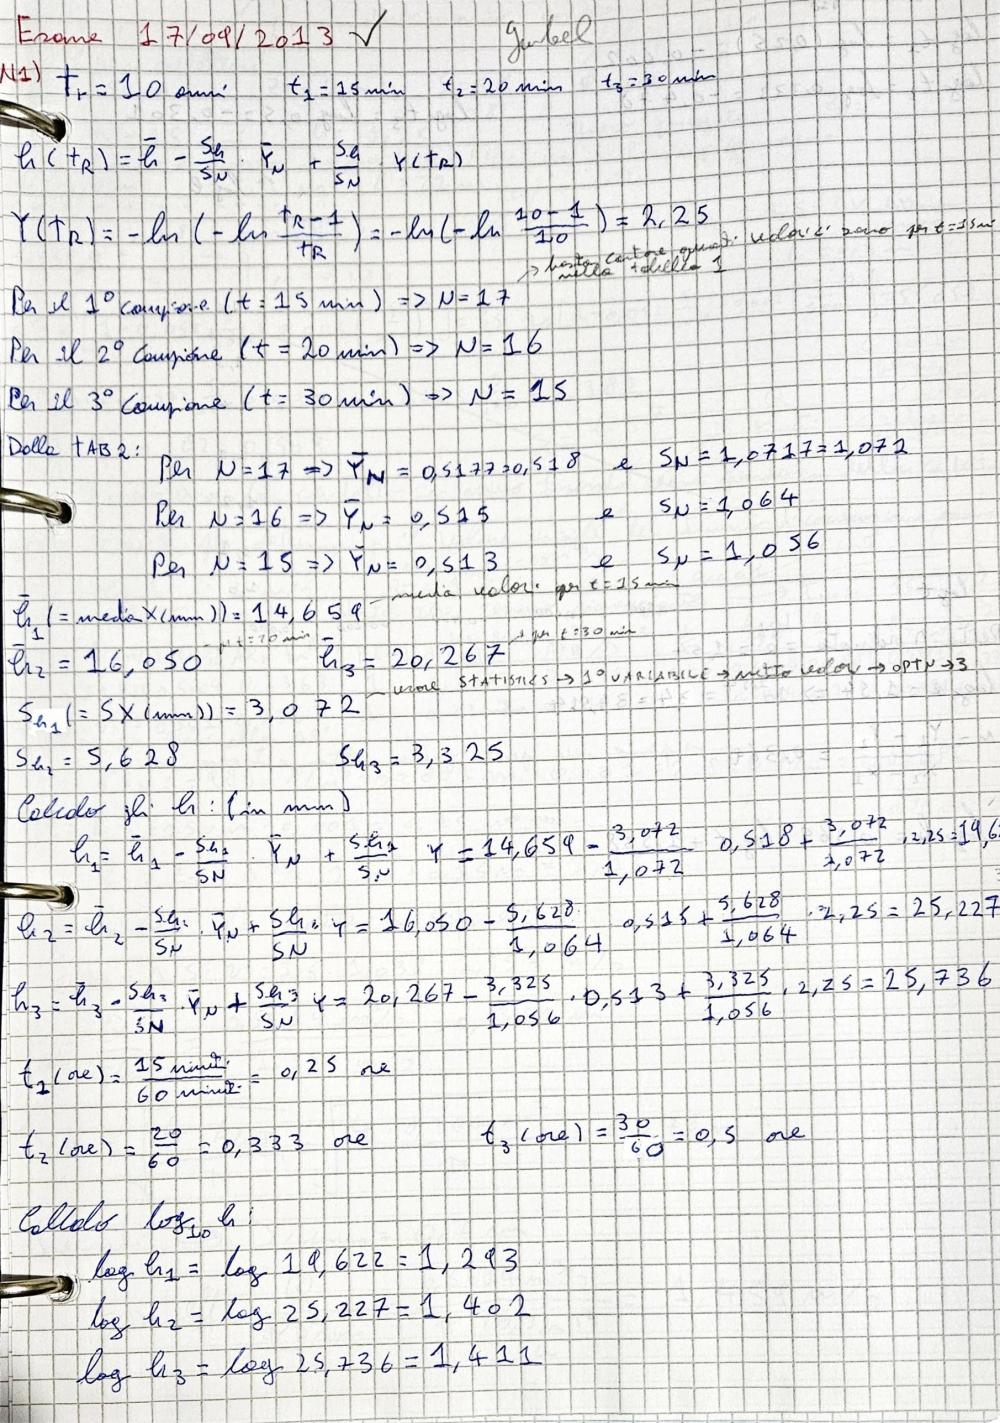 Esame 17/09/2013 ✓ Gumbel
N1) tr = 10 anni t1 = 15 min t2 = 20 min t3 = 30 min
h(tR) = h̄ - Sh/SN · ȲN + Sh/SN Y(tR)
Y(tR) = -ln(-ln (tR-1)/tR) = -ln(-ln (10-1)/10) = 2,25
-> basta contare quanti valori ci sono per t=15min
nella tabella 1
Per il 1° campione (t = 15 min) => N=17
Per il 2° Campione (t = 20 min) => N=16
Per il 3° Campione (t = 30 min) => N = 15
Dalla TAB 2:
Per N=17 => ȲN = 0,5177=0,518 e SN = 1,0717=1,072
Per N=16 => ȲN = 0,515 e SN = 1,064
Per N=15 => ȲN = 0,513 e SN = 1,056
h̄1 (= media X(mm)) = 14,659 - media valori per t=15 min
h̄2 = 16,050 h̄3 = 20,267 -> per t=30 min
Sh1 (= SX(mm)) = 3,072 - STATISTICS -> 1° VARIABILE -> metto valori -> OPTN -> 3
Sh2 = 5,628 Sh3 = 3,325
Calcolo gli h: (in mm)
h1 = h̄1 - Sh1/SN · ȲN + Sh1/SN Y = 14,659 - 3,072/1,072 0,518 + 3,072/1,072 · 2,25 = 19,62
h2 = h̄2 - Sh2/SN · ȲN + Sh2/SN Y = 16,050 - 5,628/1,064 0,515 + 5,628/1,064 · 2,25 = 25,227
h3 = h̄3 - Sh3/SN · ȲN + Sh3/SN Y = 20,267 - 3,325/1,056 · 0,513 + 3,325/1,056 · 2,25 = 25,736
t1 (ore) = 15 minuti/60 minuti = 0,25 ore
t2 (ore) = 20/60 = 0,333 ore t3 (ore) = 30/60 = 0,5 ore
Calcolo log10 h:
log h1 = log 19,622 = 1,293
log h2 = log 25,227 = 1,402
log h3 = log 25,736 = 1,411